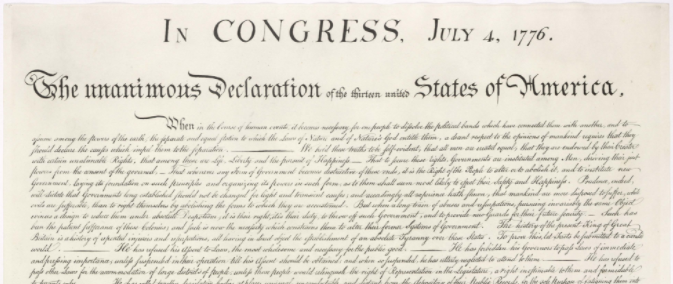 IN CONGRESS, JULY 4, 1776.
The unanimous Declaration of the thirteen united States of America,
When in the Course of human events, it becomes necessary for one people to dissolve the political bands which have connected them with another, and to
assume among the powers of the earth, the separate and equal station to which the Laws of Nature and of Nature's God entitle them, a decent respect to the opinions of mankind requires that they
should declare the causes which impel them to the separation. We hold these truths to be self-evident, that all men are created equal, that they are endowed by their Creator
with certain unalienable Rights, that among these are Life, Liberty and the pursuit of Happiness. — That to secure these rights, Governments are instituted among Men, deriving their just
powers from the consent of the governed, — That whenever any Form of Government becomes destructive of these ends, it is the Right of the People to alter or to abolish it, and to institute new
Government, laying its foundation on such principles and organizing its powers in such form, as to them shall seem most likely to effect their Safety and Happiness. Prudence, indeed,
will dictate that Governments long established should not be changed for light and transient causes; and accordingly all experience hath shewn, that mankind are more disposed to suffer, while
evils are sufferable, than to right themselves by abolishing the forms to which they are accustomed. But when a long train of abuses and usurpations, pursuing invariably the same Object
evinces a design to reduce them under absolute Despotism, it is their right, it is their duty, to throw off such Government, and to provide new Guards for their future security. — Such has
been the patient sufferance of these Colonies; and such is now the necessity which constrains them to alter their former Systems of Government. The history of the present King of Great
Britain is a history of repeated injuries and usurpations, all having in direct object the establishment of an absolute Tyranny over these States. To prove this, let Facts be submitted to a candid
world. He has refused his Assent to Laws, the most wholesome and necessary for the public good. He has forbidden his Governors to pass Laws of immediate
and pressing importance, unless suspended in their operation till his Assent should be obtained; and when so suspended, he has utterly neglected to attend to them. He has refused to
pass other Laws for the accommodation of large districts of people, unless those people would relinquish the right of Representation in the Legislature, a right inestimable to them and formidable